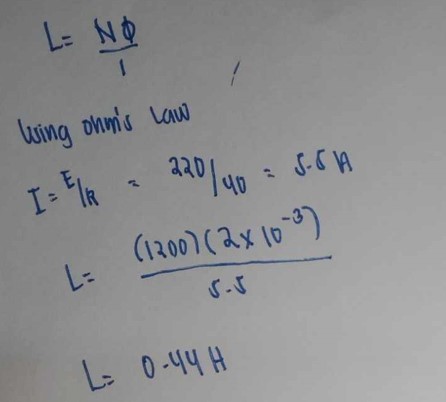 L= NΦ/I
Using ohm's law
I = E/R = 220/40 = 5.5 A
L= (1200)(2x10⁻³)/5.5
L= 0.44 H